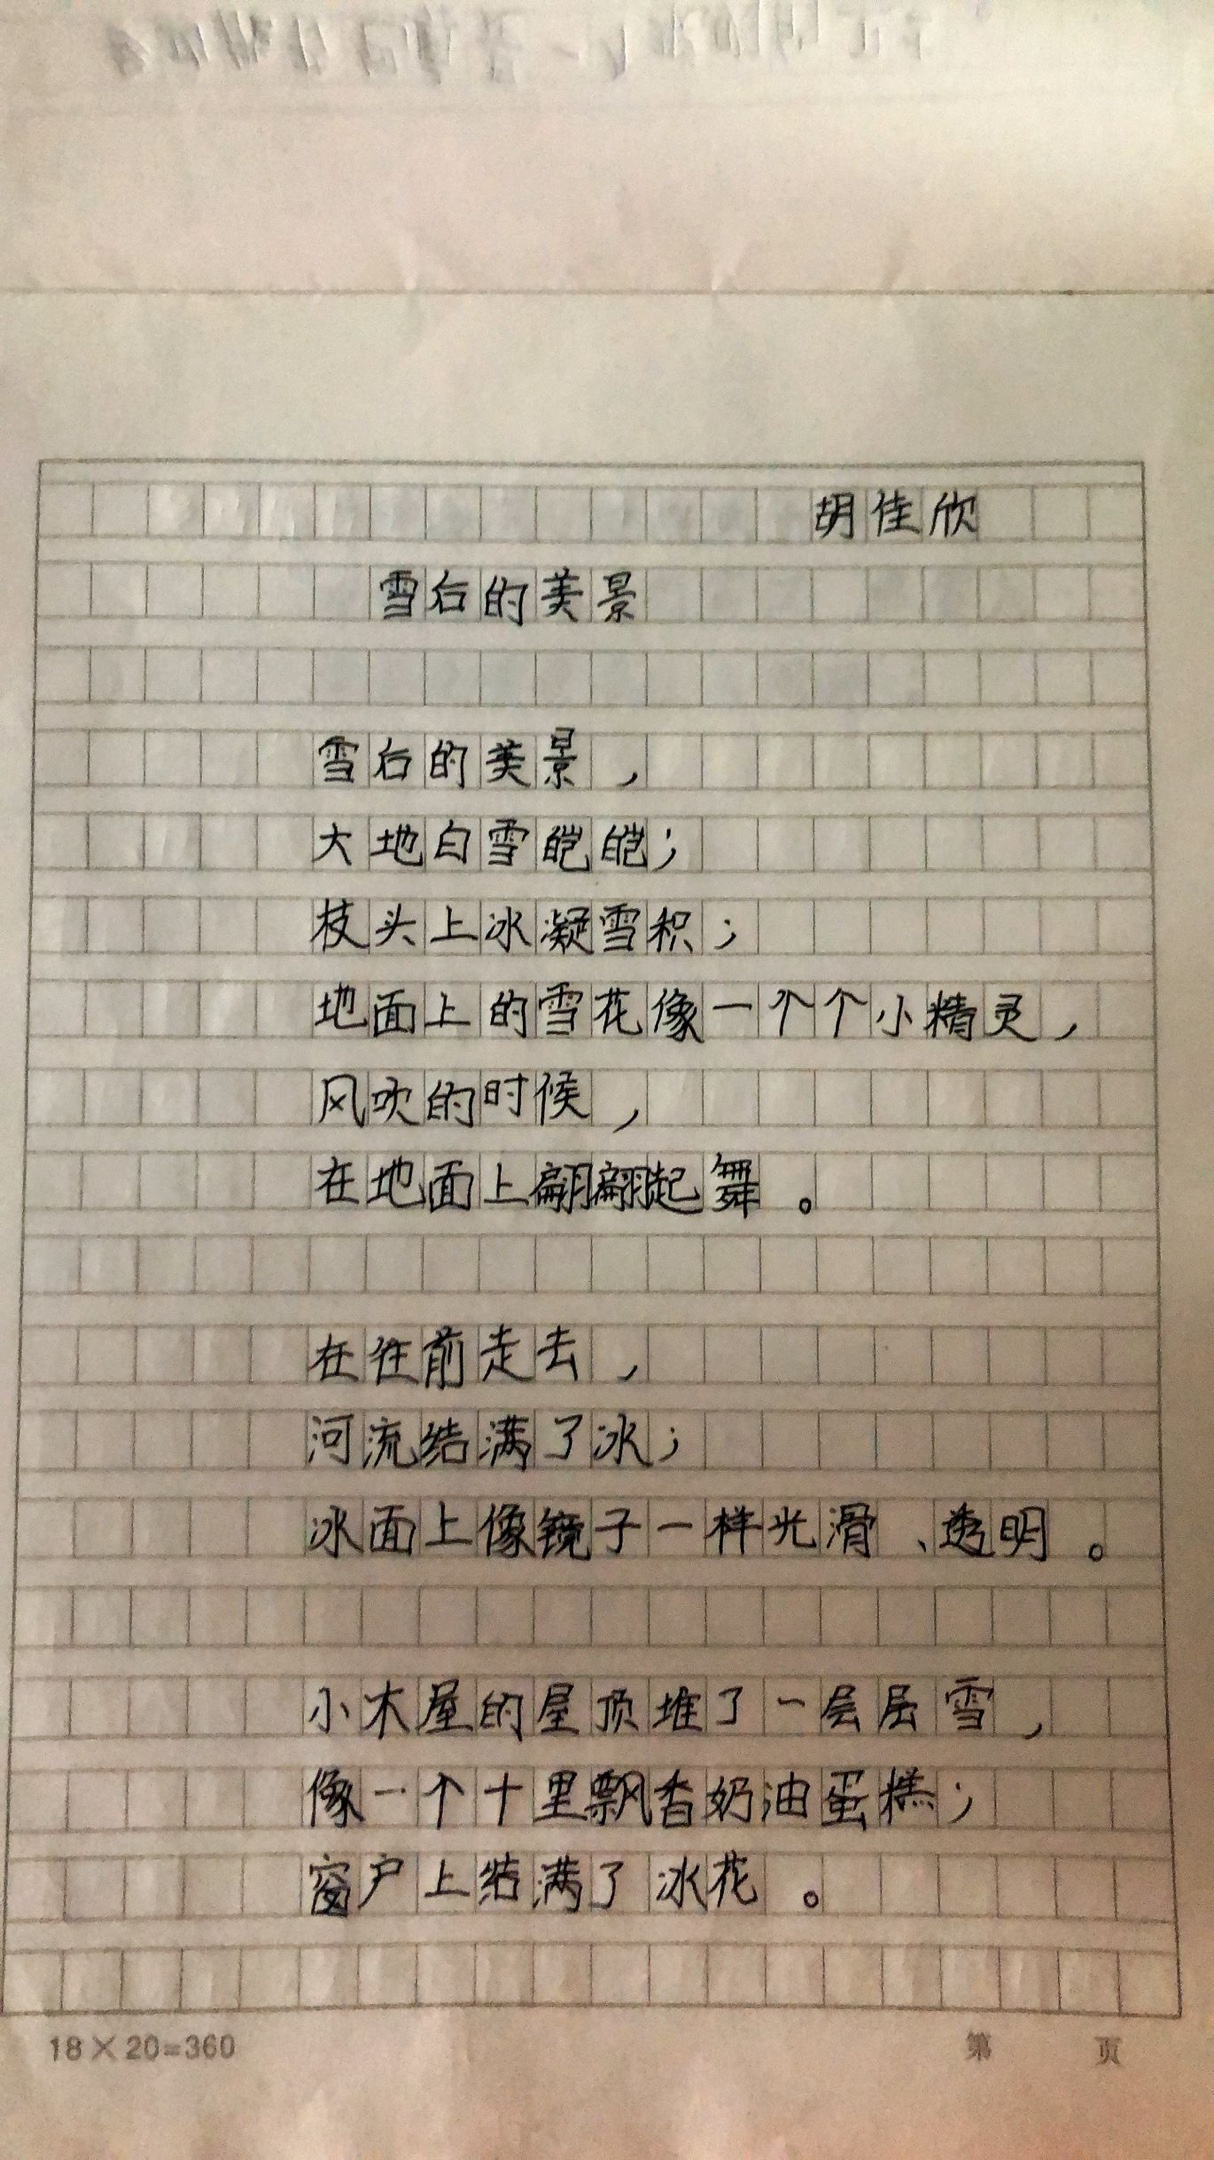 胡佳欣
雪后的美景
雪后的美景，
大地白雪皑皑；
枝头上冰凝雪积；
地面上的雪花像一个个小精灵，
风吹的时候，
在地面上翩翩起舞。
在往前走去，
河流结满了冰；
冰面上像镜子一样光滑、透明。
小木屋的屋顶堆了一层层雪，
像一个十里飘香奶油蛋糕；
窗户上结满了冰花。
18×20=360
第 页